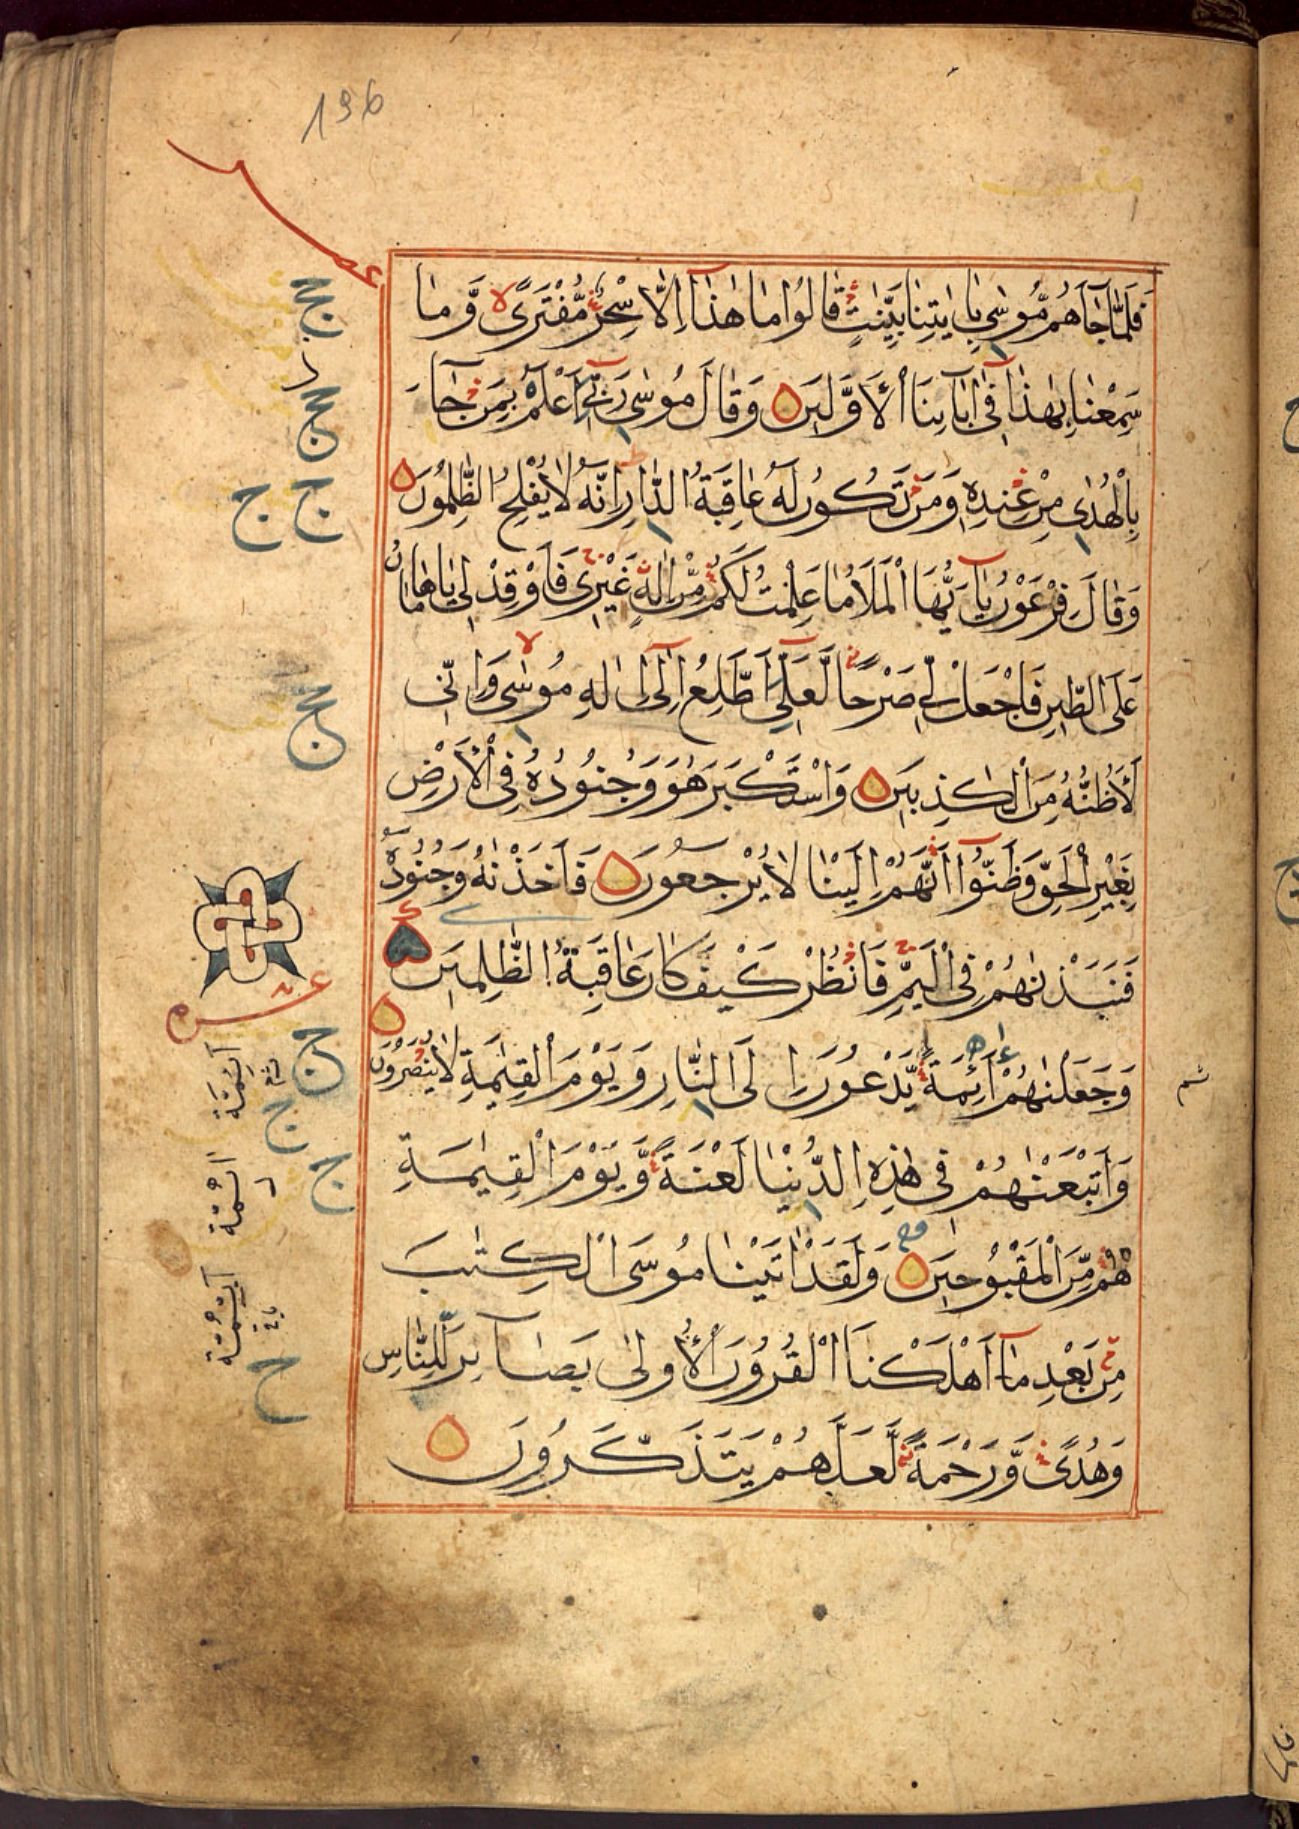 196
فَلَمَّا جَاۤءَهُمْ مُّوسٰى بِاٰيٰتِنَا بَيِّنٰتٍ قَالُوْا مَا هٰذَاۤ اِلَّا سِحْرٌ مُّفْتَرًى وَّمَا
سَمِعْنَا بِهٰذَا فِىۤ اٰبَاۤئِنَا الْاَوَّلِيْنَ وَقَالَ مُوسٰى رَبِّىۤ اَعْلَمُ بِمَنْ جَاۤءَ
بِالْهُدٰى مِنْ عِنْدِهٖ وَمَنْ تَكُوْنُ لَهٗ عَاقِبَةُ الدَّارِ اِنَّهٗ لَا يُفْلِحُ الظّٰلِمُوْنَ
وَقَالَ فِرْعَوْنُ يَاۤ اَيُّهَا الْمَلَاُ مَا عَلِمْتُ لَكُمْ مِّنْ اِلٰهٍ غَيْرِىْ فَاَوْقِدْ لِىْ يَا هَامَانُ
عَلَى الطِّيْنِ فَاجْعَلْ لِّىْ صَرْحًا لَّعَلِّىۤ اَطَّلِعُ اِلٰىۤ اِلٰهِ مُوسٰى وَاِنِّىْ
لَاَظُنُّهٗ مِنَ الْكٰذِبِيْنَ وَاسْتَكْبَرَ هُوَ وَجُنُوْدُهٗ فِى الْاَرْضِ
بِغَيْرِ الْحَقِّ وَظَنُّوْاۤ اَنَّهُمْ اِلَيْنَا لَا يُرْجَعُوْنَ فَاَخَذْنٰهُ وَجُنُوْدَهٗ
فَنَبَذْنٰهُمْ فِى الْيَمِّ فَانْظُرْ كَيْفَ كَانَ عَاقِبَةُ الظّٰلِمِيْنَ
وَجَعَلْنٰهُمْ اَئِمَّةً يَّدْعُوْنَ اِلَى النَّارِ وَيَوْمَ الْقِيٰمَةِ لَا يُنْصَرُوْنَ
وَاَتْبَعْنٰهُمْ فِىْ هٰذِهِ الدُّنْيَا لَعْنَةً وَّيَوْمَ الْقِيٰمَةِ
هُمْ مِّنَ الْمَقْبُوْحِيْنَ وَلَقَدْ اٰتَيْنَا مُوسَى الْكِتٰبَ
مِنْ بَعْدِ مَاۤ اَهْلَكْنَا الْقُرُوْنَ الْاُوْلٰى بَصَاۤئِرَ لِلنَّاسِ
وَهُدًى وَّرَحْمَةً لَّعَلَّهُمْ يَتَذَكَّرُوْنَ